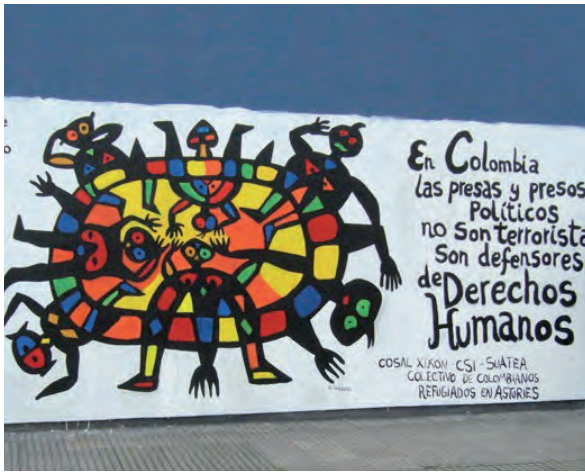 En Colombia
las presas y presos
Políticos
no son terrorista
son defensores
de Derechos
Humanos
COSAL XIXON - CSI - SUATEA
COLECTIVO DE COLOMBIANOS
REFUGIADOS EN ASTURIES